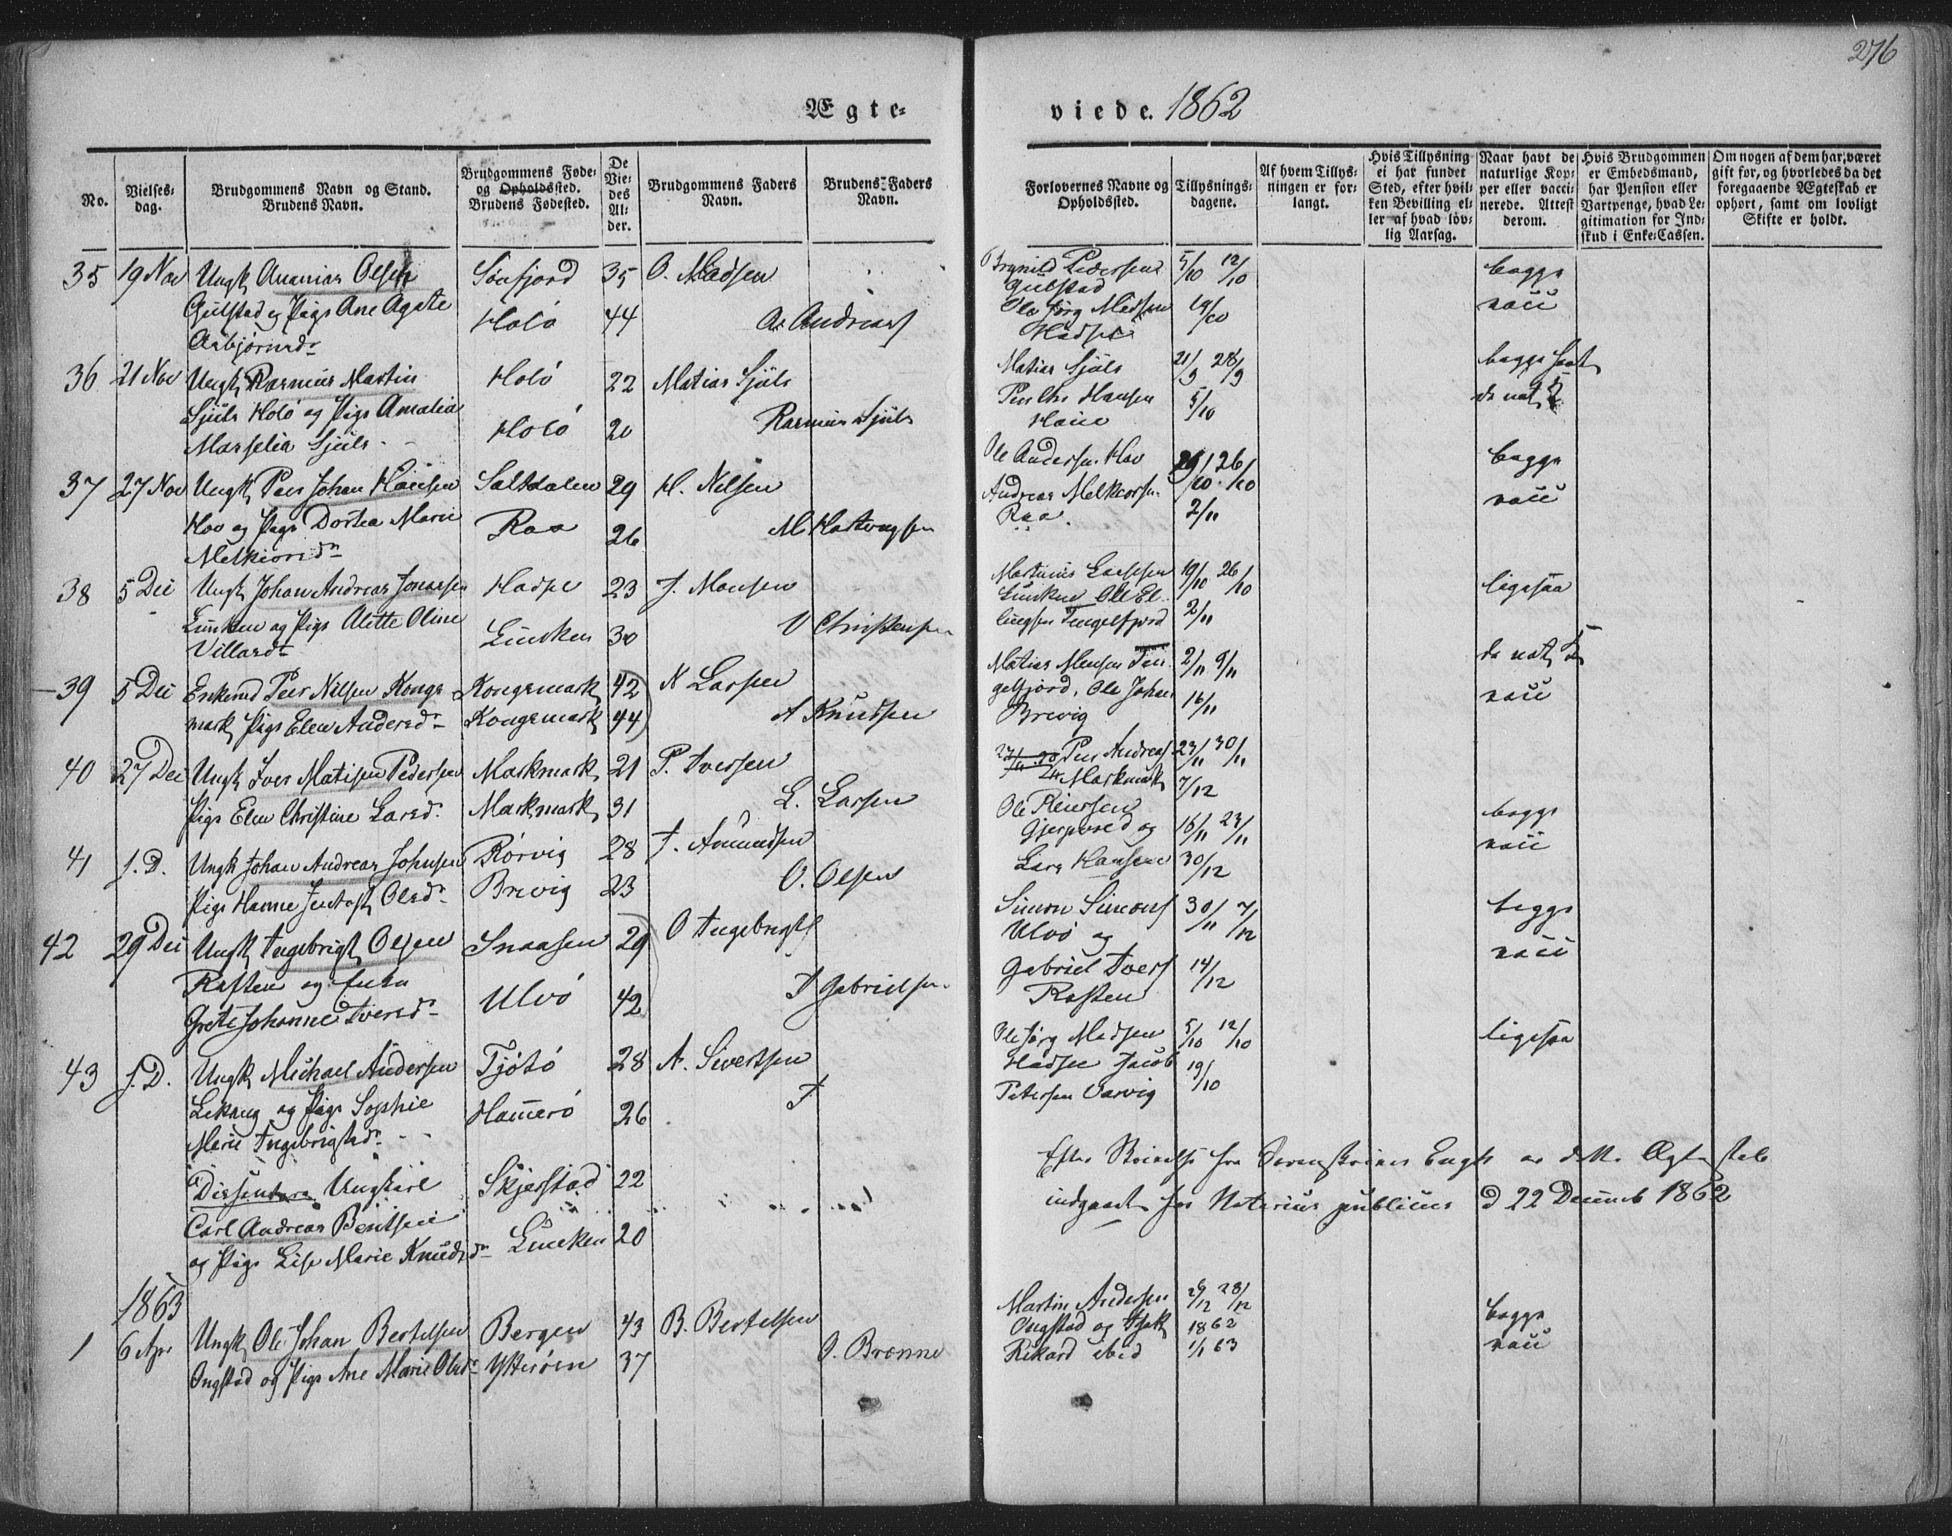 276
Ægte-
viede. 1862
No.
Vielses-
dag.
Brudgommens Navn og Stand.
Brudens Navn.
Brudgommens Føde-
og Opholdssted.
Brudens Fødested.
De
Vie-
des
Al-
der.
Brudgommens Faders
Navn.
Brudens Faders
Navn.
Forlovernes Navne og
Opholdssted.
Tillysnings-
dagene.
Af hvem Tillys-
ningen er for-
langt.
Hvis Tillysning
ei har fundet
Sted, efter hvil-
ken Bevilling el-
ler af hvad lov-
lig Aarsag.
Naar havt de
naturlige Kop-
per eller vacci-
nerede. Attest
derom.
Hvis Brudgommen
er Embedsmand,
har Pension eller
Vartpenge, hvad Le-
gitimation for Ind-
skud i Enke-Cassen.
Om nogen af dem har været
gift før, og hvorledes da det
foregaaende Ægteskab er
ophørt, samt om lovligt
Skifte er holdt.
35 19 Nov Ungk Ananias Olsen Sønfjord 35 O. Madsen
Gulstad og Pige Ane Agate Holø 44 As. Andreas
Asbjørnsd.
Brynild Pedersen 5/10 12/10 begge
Gulstad
Ole Jørg Madsen 19/10 vacc
Hadsel
36 21 Nov Ungk Rasmus Martin Holø 22 Matias Sjuls
Sjuls Holø og Pige Amalia Holø 20 Rasmus Sjuls
Marselia Sjuls
Matias Sjuls 21/9 28/9 begge havt
Peer Chr Hansen 5/10 de nat K
37 27 Nov Ungk Peer Johan Hansen Saltdalen 29 H. Nilsen
Hov og Pige Dortea Marie Raa 26 M Hartvigsen
Melkiorsd.
Ole Andersen Hov 19/10 26/10 begge
Andreas Melkiorsen 2/11 vacc
Raa.
38 5 Dec Ungk Johan Andreas Jonassen Hadsel 23 J. Monsen
Lunken og Pige Alette Oline Lunken 30 V Christensen
Villasd.
Martinus Larssen 19/10 26/10 ligesaa
Lunken Ole El- 2/11
lingsen Tengelfjord
39 5 Dec Enkemd Peer Nilsen Konge Kongsmark 42 N Larsen
mark Pige Elen Andersd. Kongsmark 44 A Knudsen
Matias Monsen Ten 2/11 9/11 de nat K
gelfjord, Ole Johan 16/11 vacc
Brevig
40 27 Dec Ungk Iver Matisen Pedersen Markmark 21 P. Iversen
Pige Elen Christine Larsd. Markmark 31 L. Larsen
Peer Andreas 23/11 30/11
Markmark 7/12
41 s. D. Ungk Johan Andreas Johnsen Rørvig 28 J. Amundsen
Pige Hanne Olsd. Brevig 23 O. Olsen
Ole Reiersen begge
og 16/11 23/11 vacc
Lars Hansen 30/12
42 29 Dec Ungk Ingebrigt Olsen Snaasen 29 O Ingebrigts
Raften og Enke Ulvø 42 I Gabrielsen
Grete Johanne Iversd.
Simon Simons 30/11 7/12 begge
Ulvø og vacc
Gabriel Ivers 14/12
Raften
43 s. D. Ungk Michael Andersen Tjøtø 28 A. Sivertsen
Lekang og Pige Sophie Hamerø 26 I
Marie Ingebrigtsd.
Ole Jørg Madsen 5/10 12/10 ligesaa
Hadsel Jacob 19/10
Petersen Varvig
Dissentere Ungkarl Skjerstad 22
Carl Andreas Beritsen
og Pige Lise Marie Knudsd. Lunken 20
Efter fra Sorenskriver Engh er dette Ægteskab
indgaaet for Notarius publicus d 22 Decemb 1862
1863
1 6 Apr Ungk Ole Johan Bertelsen Bergen 43 B. Bertelsen
Ongstad og Pige Ane Marie Olsd. Ytterøen 37 O. Brønne
Martin Andersen 26/12 28/12 begge
Ongstad og Isak 1862 vacc
Rikard ibid 1/1 63